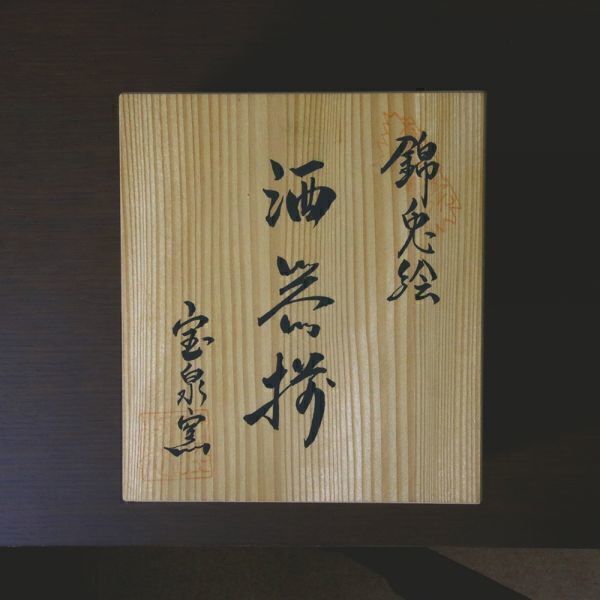 錦兎絵
酒器揃
宝泉窯